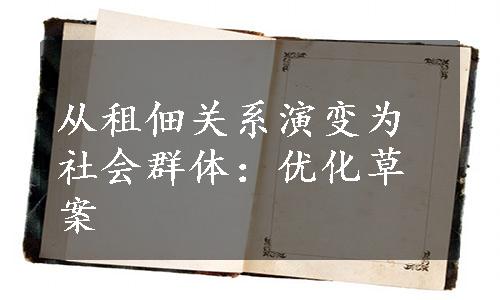 从租佃关系演变为
社会群体：优化草
案